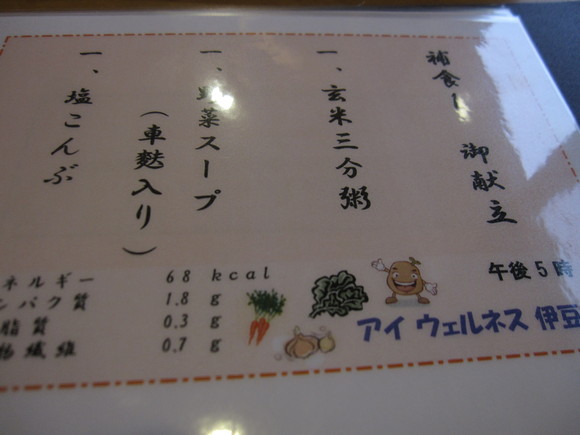 補食1 御献立
一、玄米三分粥
一、野菜スープ
（車麩入り）
一、塩こんぶ
午後5時
ネルギー 68 kcal
パク質 1.8 g
脂質 0.3 g
物繊維 0.7 g
アイ ウェルネス 伊豆